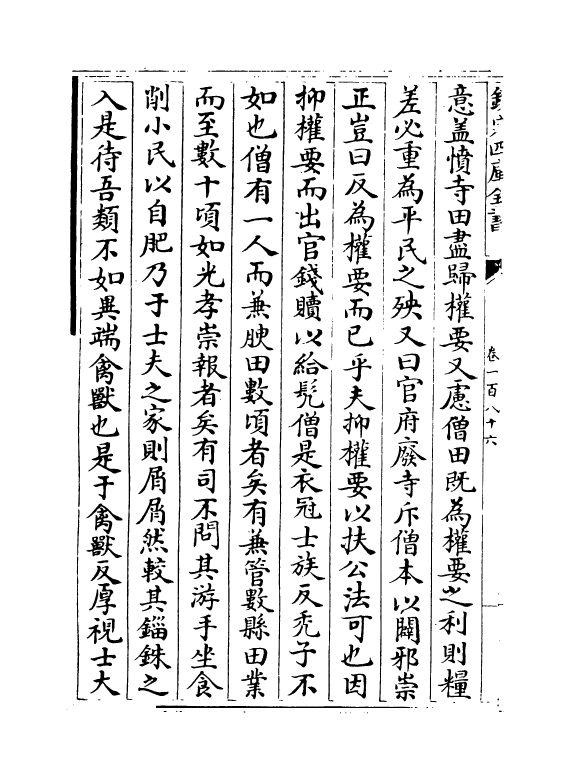 欽定四庫全書
卷一百八十六
意盖憤寺田盡歸權要又慮僧田既為權要之利則糧
差必重為平民之殃又曰官府廢寺斥僧本以闢邪崇
正豈曰反為權要而已乎夫抑權要以扶公法可也因
抑權要而出官錢贖以給髠僧是衣冠士族反秃子不
如也僧有一人而兼腴田數頃者矣有兼管數縣田業
而至數十頃如光孝崇報者矣有司不問其游手坐食
削小民以自肥乃于士夫之家則屑屑然較其錙銖之
入是待吾類不如異端禽獸也是于禽獸反厚視士大